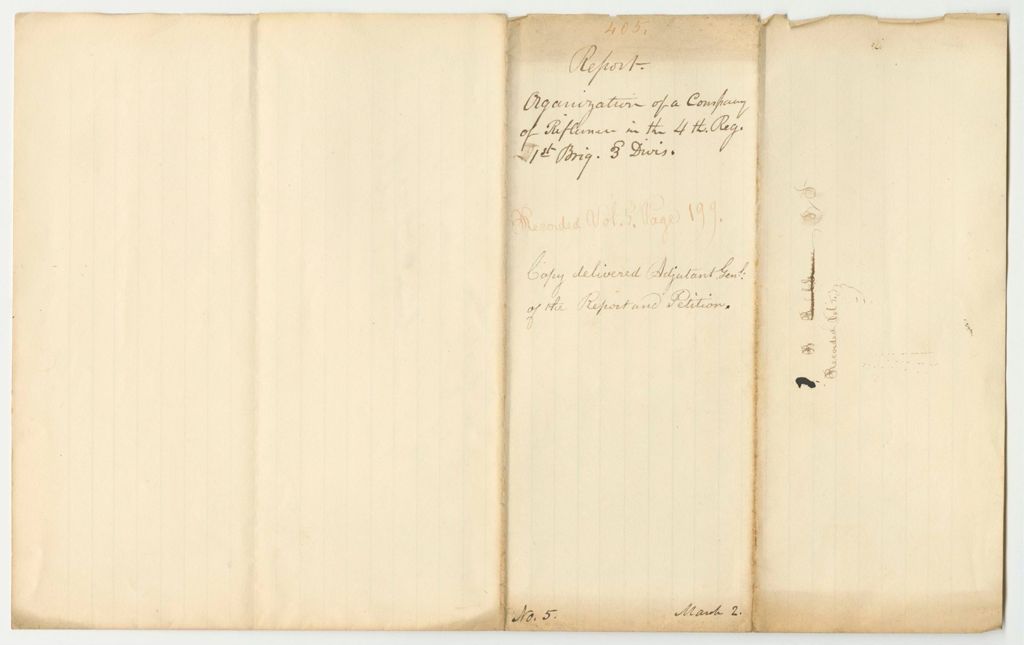 405.
Report.
Organization of a Company
of Riflemen in the 4th. Reg.
1st Brig. 3 Divis.
Recorded Vol. 5. Page 199.
Copy delivered Adjutant Genl.
of the Report and Petition.
No. 5. March 2.
Recorded Vol.